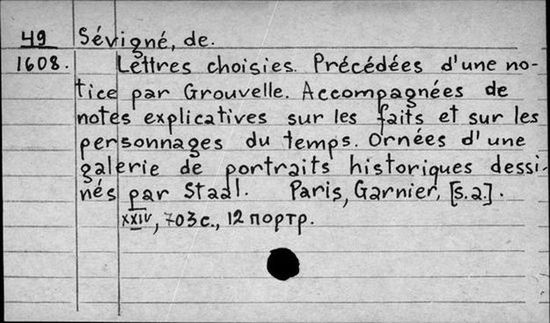 49 Sévigné, de.
1608. Lettres choisies. Précédées d'une no-
tice par Grouvelle. Accompagnées de
notes explicatives sur les faits et sur les
personnages du temps. Ornées d'une
galerie de portraits historiques dessi-
nés par Staal. Paris, Garnier, [s.a.].
XXIV, 703 c., 12 портр.